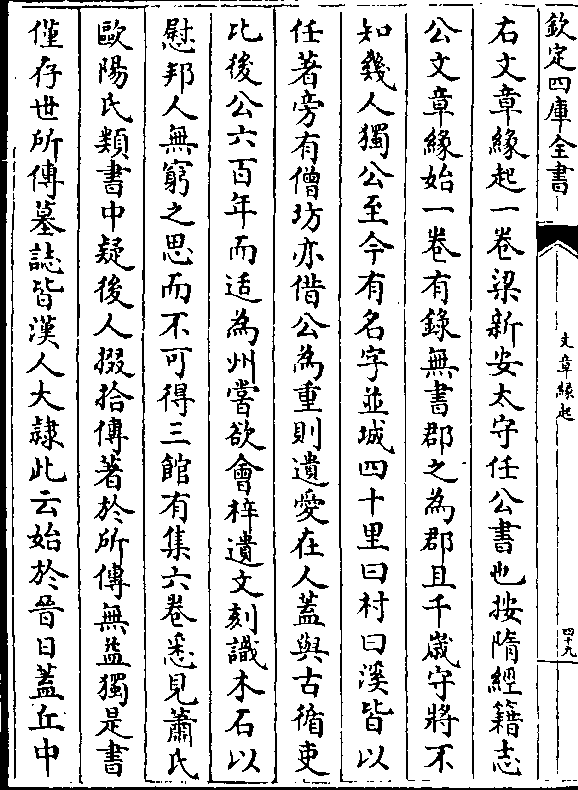 欽定四庫全書
文章緣起
四十九
右文章緣起一卷梁新安太守任公書也按隋經籍志
公文章緣始一卷有錄無書郡之為郡且千歲守將不
知幾人獨公至今有名字並城四十里曰村曰溪皆以
任著旁有僧坊亦借公為重則遺愛在人蓋與古循吏
比後公六百年而适為州嘗欲會稡遺文刻識木石以
慰邦人無窮之思而不可得三館有集六卷悉見蕭氏
歐陽氏類書中疑後人掇拾傳著於所傳無益獨是書
僅存世所傳墓誌皆漢人大隷此云始於晉日蓋丘中